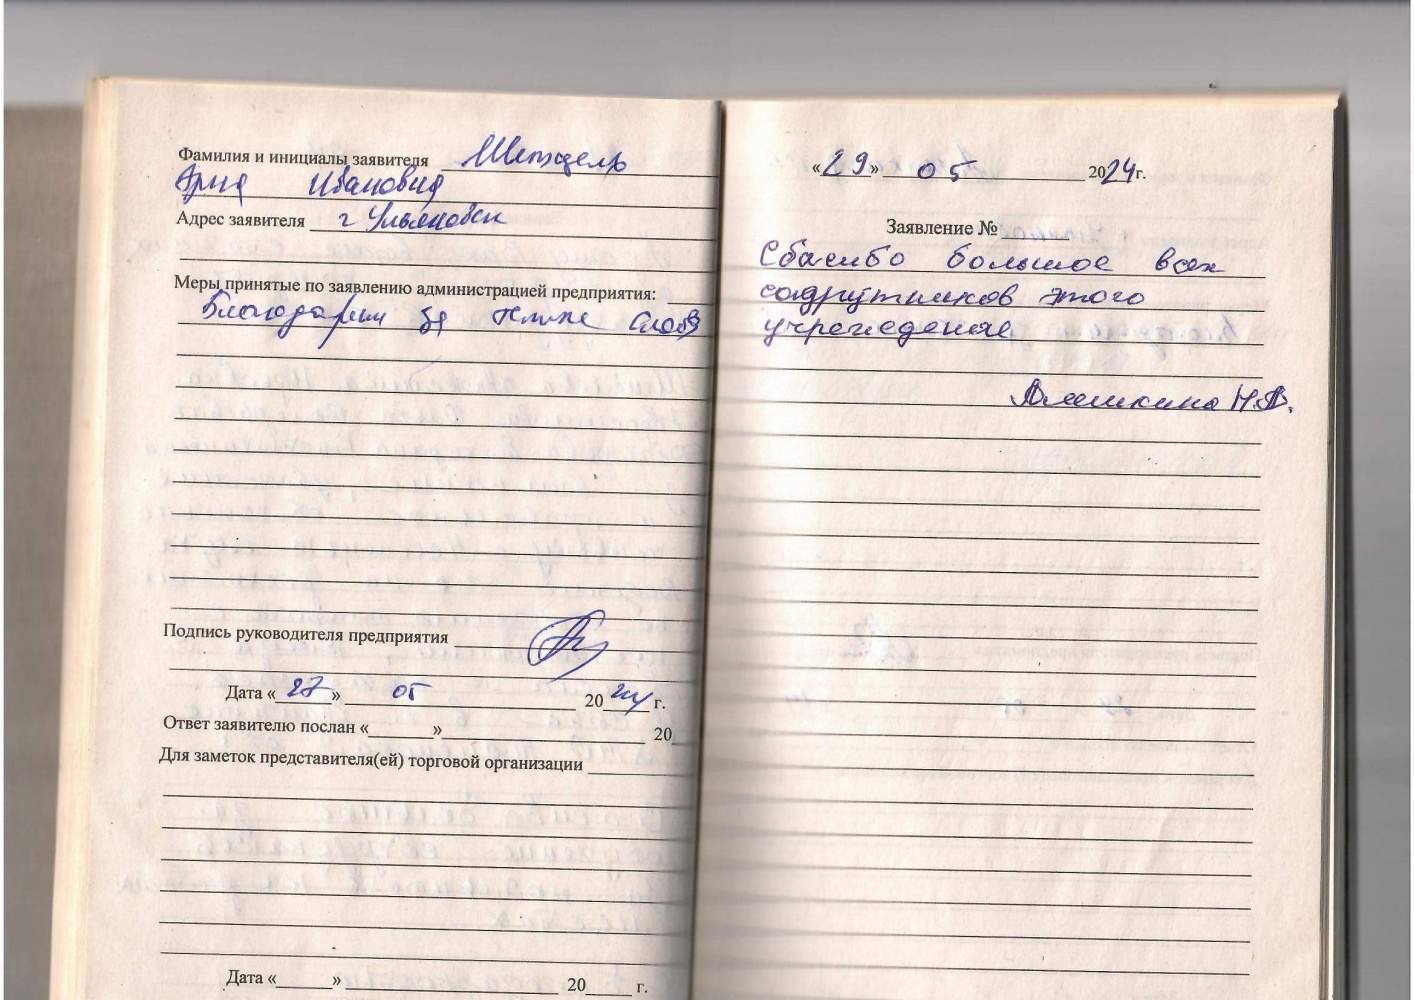 Фамилия и инициалы заявителя
Ивановна
Адрес заявителя г Ульяновск
Меры принятые по заявлению администрацией предприятия:
Благодарим за теплые слова
Подпись руководителя предприятия
Дата « 27 » 05 2024 г.
Ответ заявителю послан « » 20
Для заметок представителя(ей) торговой организации
Дата « » 20 г.
«29» 05 2024г.
Заявление №
Спасибо большое всех
сотрутников этого
учреждения
Алешкина Н.А.